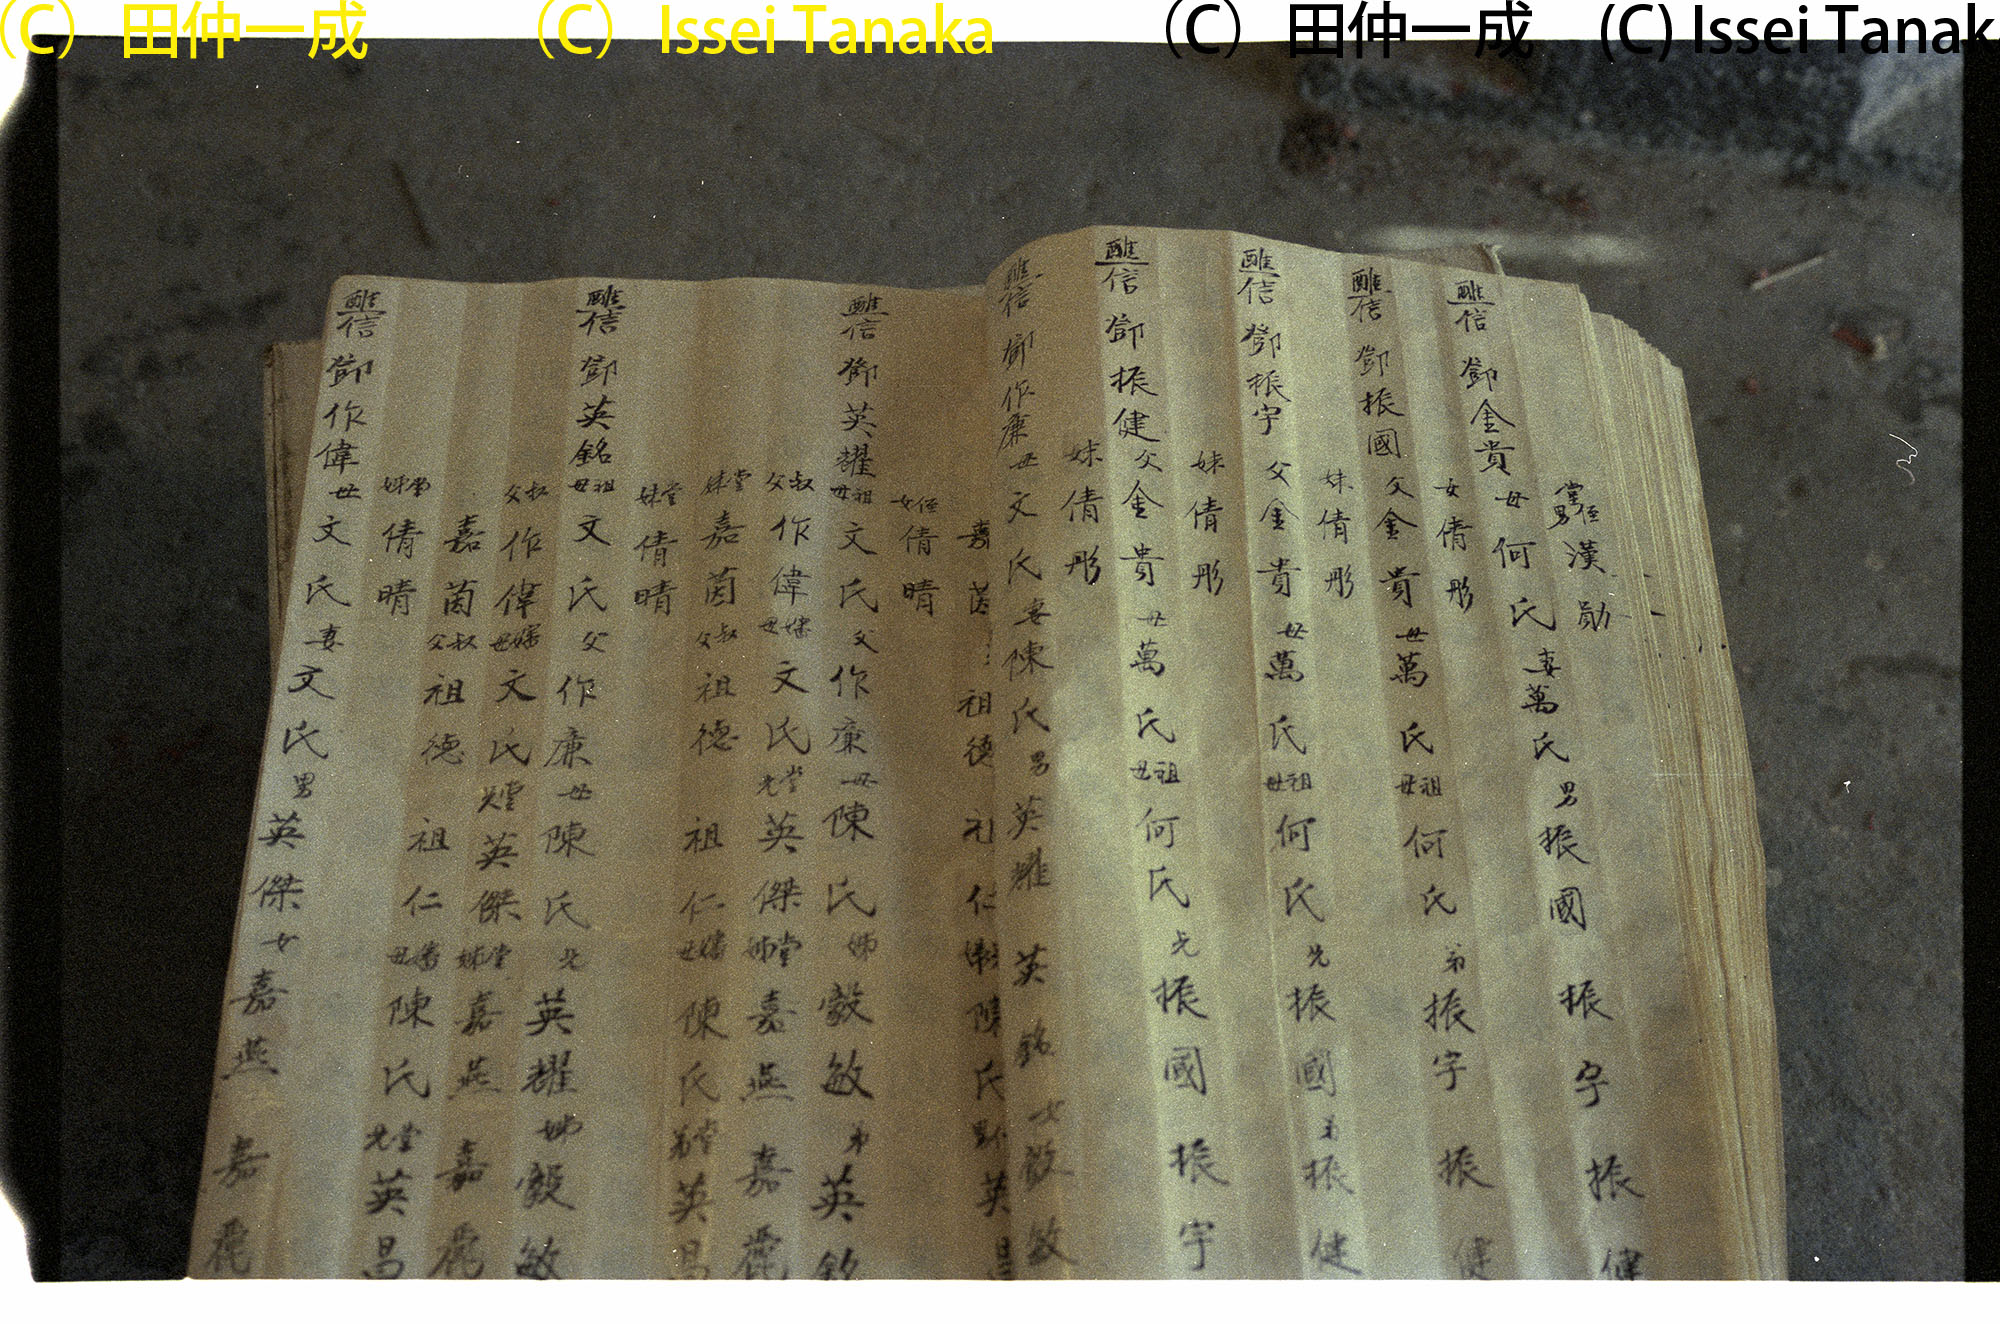 (C) 田仲一成 (C) Issei Tanaka (C) 田仲一成 (C) Issei Tanak
堂侄男漢勛
醮信鄧金貴母何氏妻萬氏男振國振宇振健
女倩彤
醮信鄧振國父金貴母萬氏祖母何氏弟振宇振健
妹倩彤
醮信鄧振宇父金貴母萬氏祖母何氏兄振國弟振健
妹倩彤
醮信鄧振健父金貴母萬氏祖母何氏兄振國振宇
妹倩彤
醮信鄧作廉母文氏妻陳氏男英耀英銘女毅敏
嘉茵祖德仁陳氏英
侄女倩晴
醮信鄧英耀祖母文氏父作廉母陳氏姊毅敏弟英銘
叔父作偉嬸母文氏堂兄英傑堂姊嘉燕嘉麗
堂妹嘉茵叔父祖德祖仁嬸母陳氏堂弟英昌
堂妹倩晴
醮信鄧英銘祖母文氏父作廉母陳氏兄英耀姊毅敏
叔父作偉嬸母文氏堂兄英傑堂姊嘉燕嘉麗
嘉茵叔父祖德祖仁嬸母陳氏堂兄英昌
堂妹倩晴
醮信鄧作偉母文氏妻文氏男英傑女嘉燕嘉麗